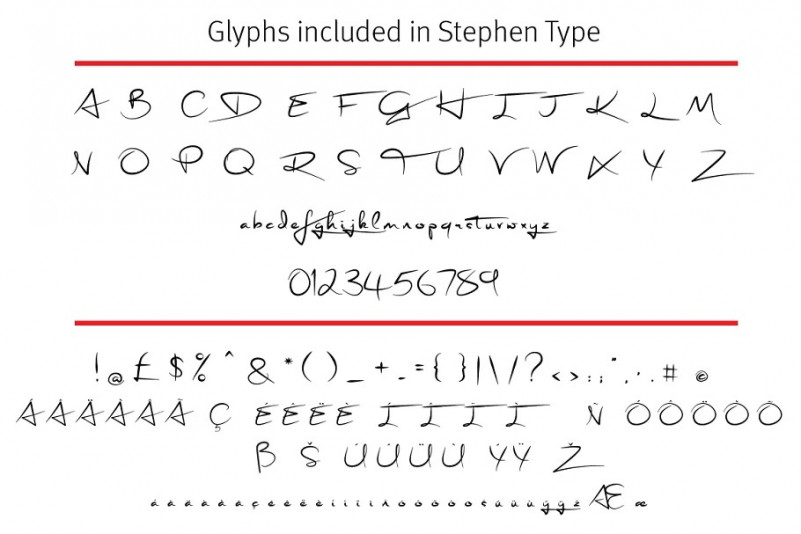 Glyphs included in Stephen Type
A B C D E F G H I J K L M
N O P Q R S T U V W X Y Z
abcdefghijklmnopqrstuvwxyz
0123456789
! @ £ $ % ^ & * ( ) _ + - = { } | \ / ? < > : ; " ' , . # ©
Ç É Ê Ë È Í Î Ï Ì Ñ Ó Ô Ö Ò Õ
ß Š Ú Û Ü Ù Ý Ÿ Ž
Æ æ